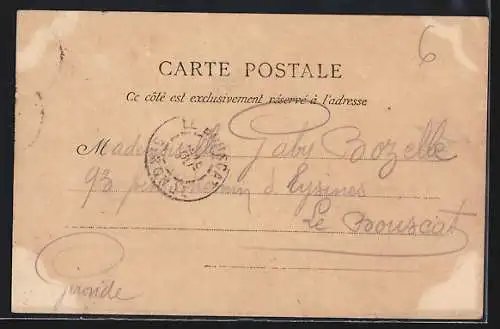 6
CARTE POSTALE
Ce côté est exclusivement réservé à l'adresse
Mademoiselle Gaby Bozelle
93 d'Eysines
LE BOUSCAT
GIRONDE
Le Bouscat
Gironde